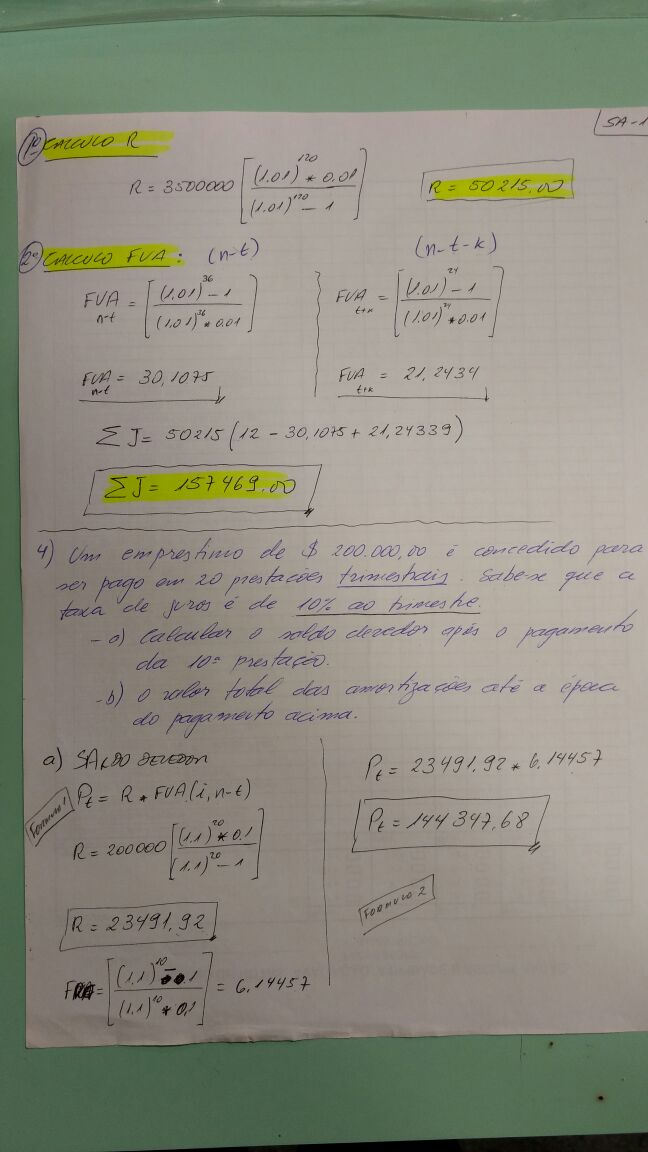 SA-1
1º CALCULO R
R = 3500000 [(1.01)^120 * 0.01 / (1.01)^120 - 1]
R = 50215,00
2º CALCULO FVA: (n-t)
(n-t-k)
FVA n-t = [(1.01)^36 - 1 / (1.01)^36 * 0.01]
FVA t+k = [(1.01)^24 - 1 / (1.01)^24 * 0.01]
FVA n-t = 30,1075
FVA t+k = 21,2434
∑J = 50215 (12 - 30,1075 + 21,24339)
∑J = 157469,00
4) Um emprestimo de $ 200.000,00 é concedido para
ser pago em 20 prestações trimestrais. Sabe-se que a
taxa de juros é de 10% ao trimestre.
-a) Calcular o saldo devedor após o pagamento
da 10ª prestação.
-b) O valor total das amortizações até a época
do pagamento acima.
a) SALDO DEVEDOR
Formula 1
Pt = R * FVA(i, n-t)
R = 200000 [(1.1)^20 * 0.1 / (1.1)^20 - 1]
R = 23491,92
= [(1.1)^10 - 1 / (1.1)^10 * 0.1] = 6,14457
Pt = 23491,92 * 6,14457
Pt = 144347,68
Formula 2